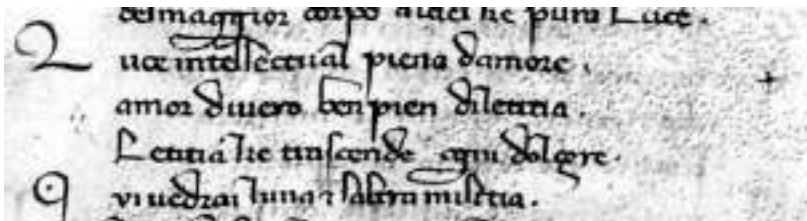 delmaggior corpo alciel ke pura Luce .
L uce intellectual piena damore .
amor diuero ben pien diletitia .
Letitia ke trascende ogni dolçore .
Q vi uedrai luna ⁊ laltra militia .